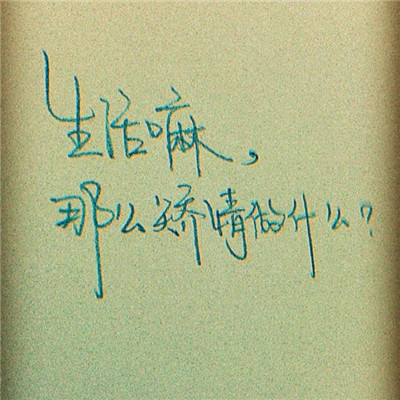 生活嘛，
那么矫情做什么？